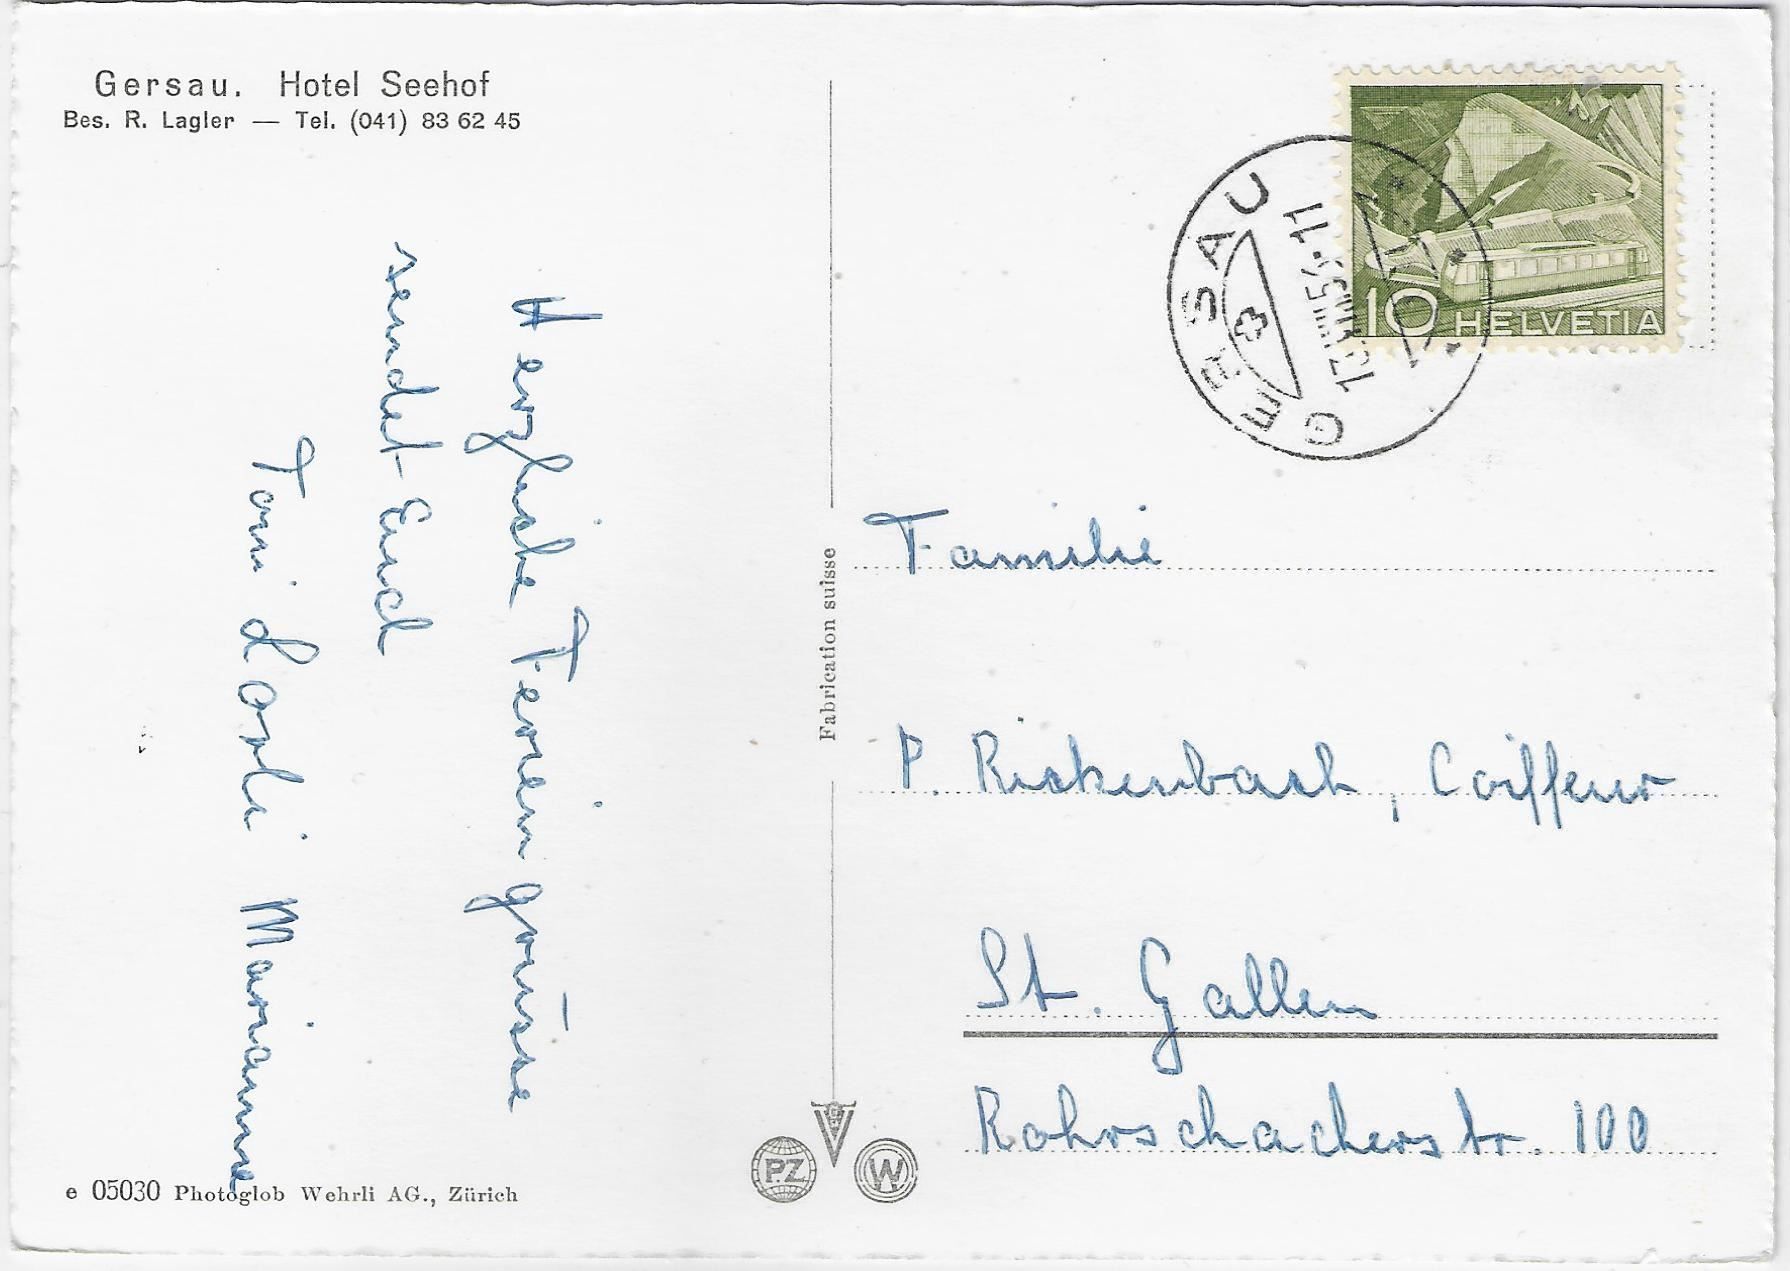 Gersau. Hotel Seehof
Bes. R. Lagler — Tel. (041) 83 62 45
Herzliche Feriengrüsse
sendet Euch
Toni Dorli Marianne
e 05030 Photoglob Wehrli AG., Zürich
Fabrication suisse
PZ
W
GERSAU
10 HELVETIA
Familie
P. Rickenbach, Coiffeur
St. Gallen
Rohrschacherstr. 100